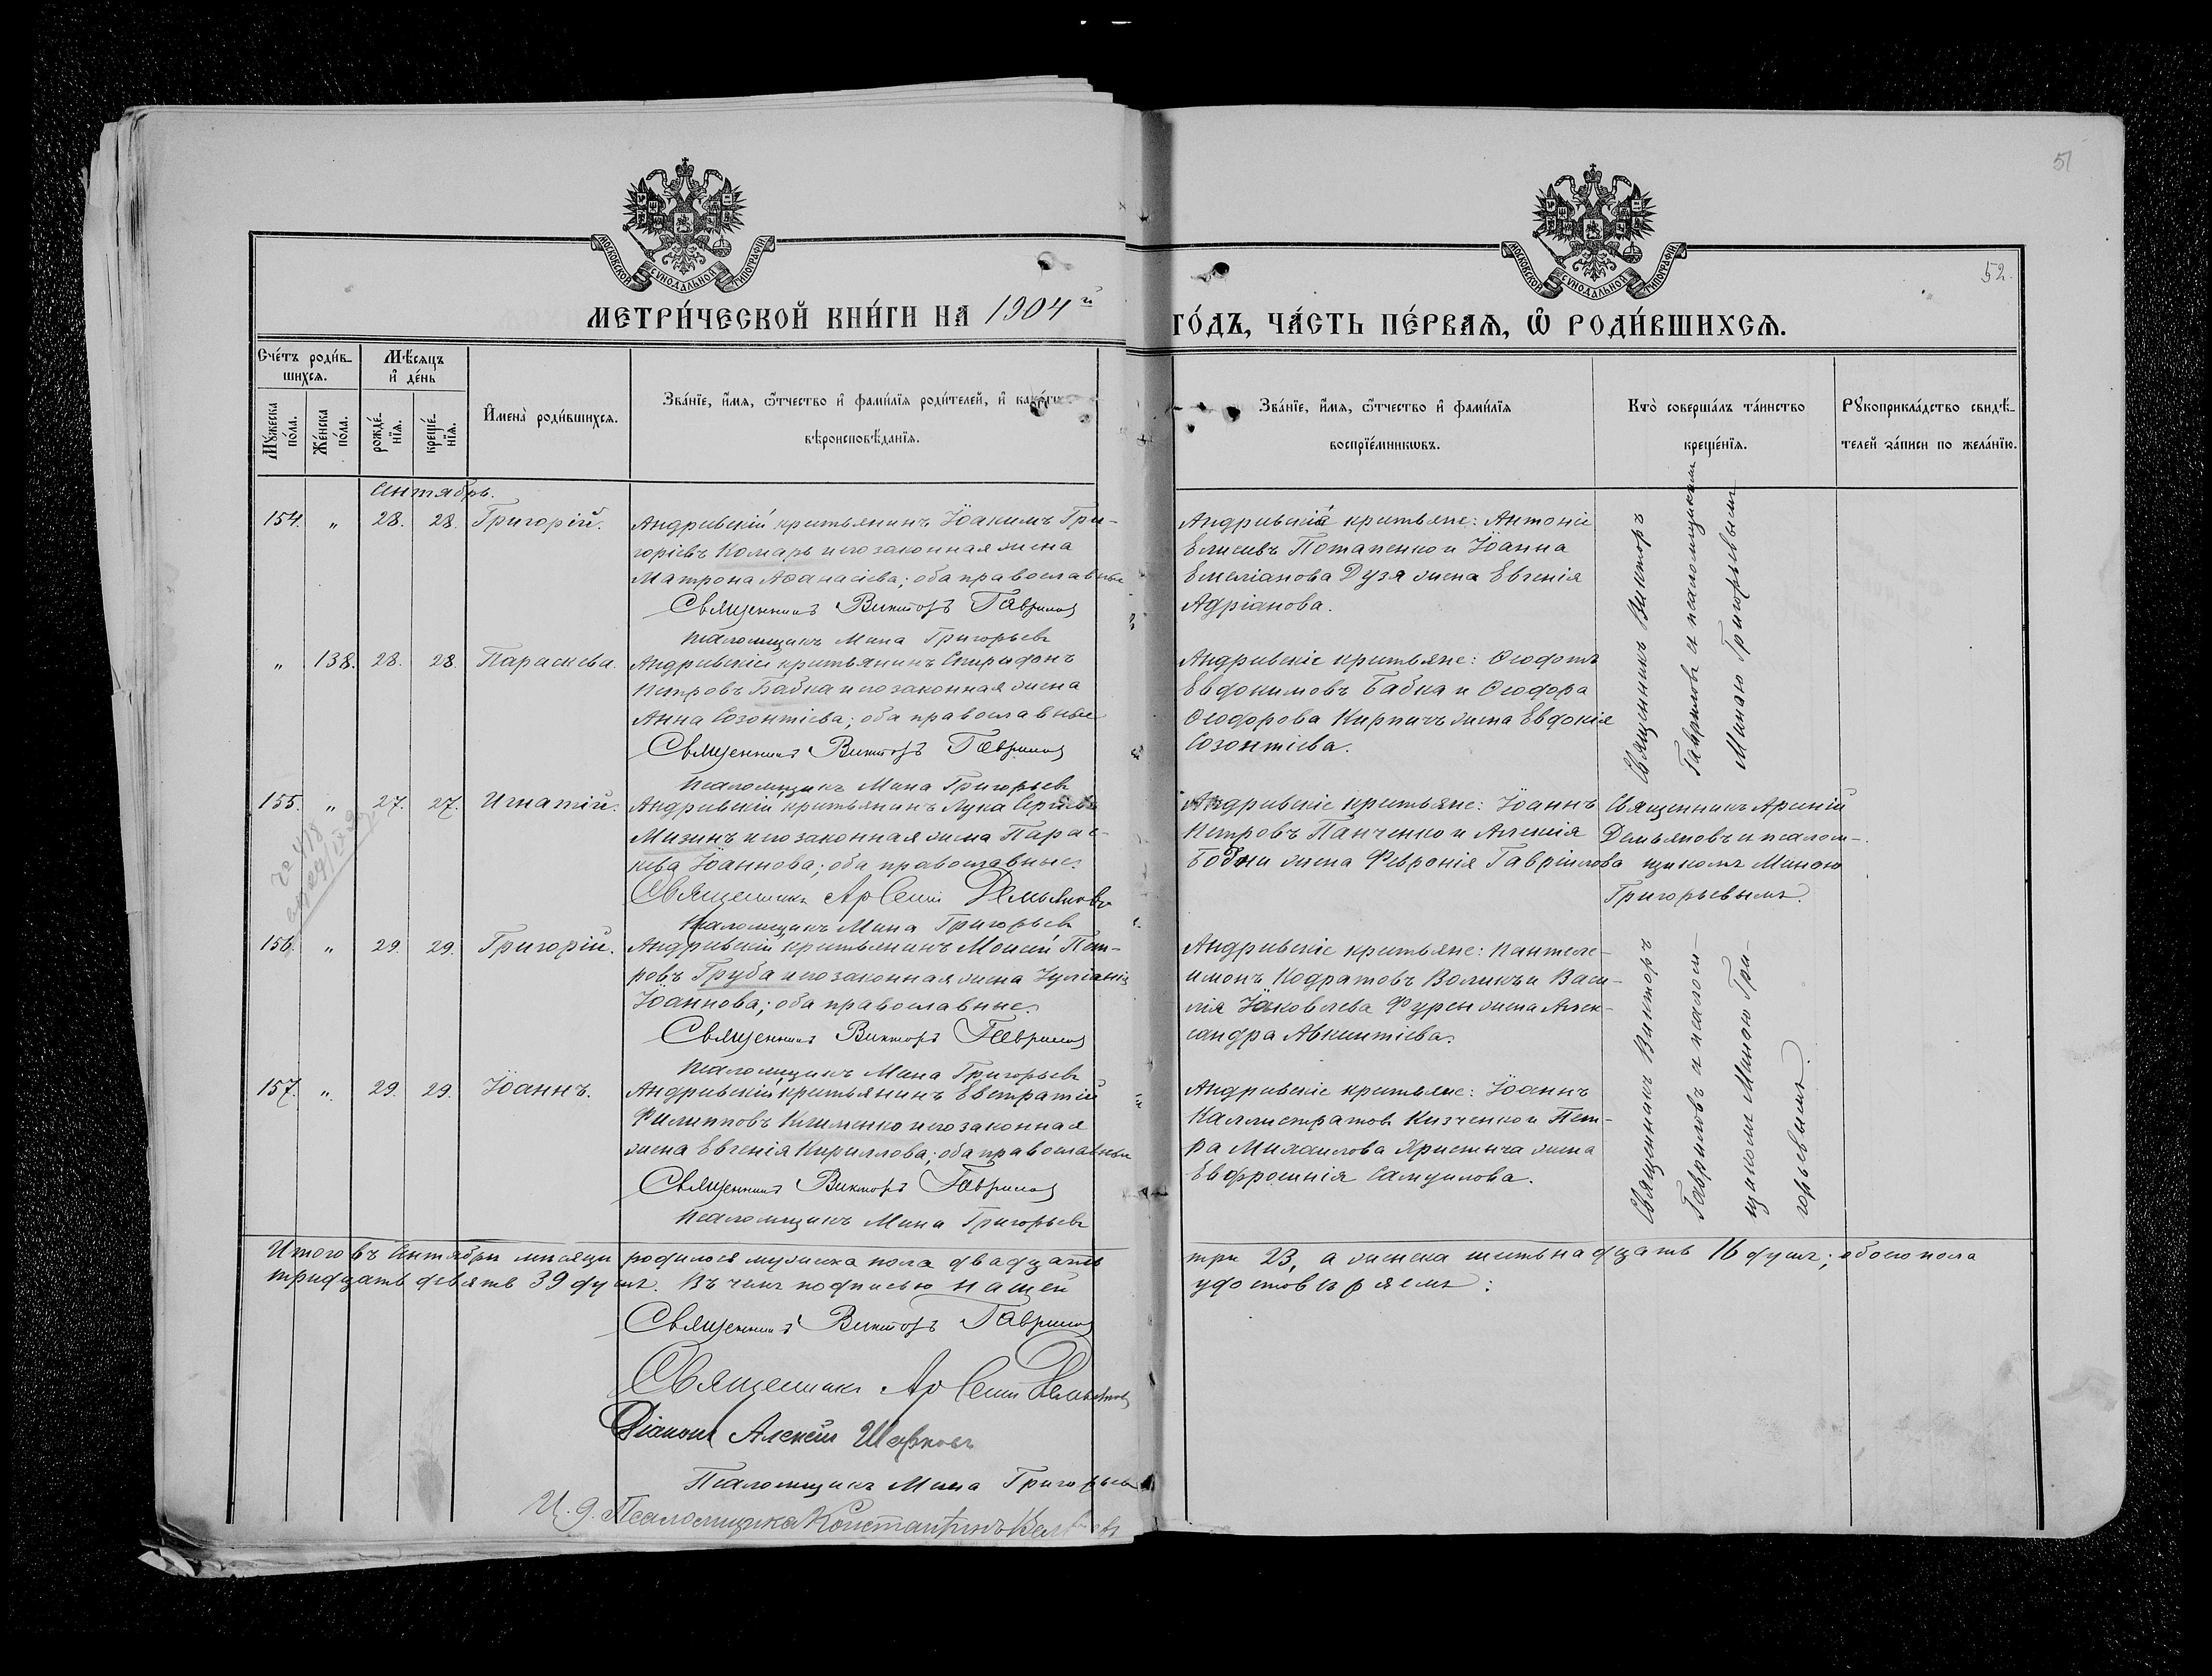 51
52.
МОСКОВСКОЙ СѴНОДАЛЬНОЙ ТИПОГРАФІИ
МОСКОВСКОЙ СѴНОДАЛЬНОЙ ТИПОГРАФІИ
МЕТРИ́ЧЕСКОЙ КНИ́ГИ НА 1904й ГО́ДЪ, ЧА́СТЬ ПЕ́РВАѦ, Ѽ РОДИ́ВШИХСѦ.
Сче́тъ роди́в-
шихсѧ.
Мѣ́сѧцъ
и҆ де́нь
Мꙋжеска
по́ла.
Же́нска
по́ла.
рожде́-
нїѧ.
креще́-
нїѧ.
И҆мена̀ роди́вшихсѧ.
Зва́нїе, и҆́мѧ, ѻ҆́тчество и҆ фами́лїѧ роди́телей, и҆ како́гѡ
вѣроисповѣ́данїѧ.
Зва́нїе, и҆́мѧ, ѻ҆́тчество и҆ фами́лїѧ
воспрїе́мникѡвъ.
Кто̀ соверша́лъ та́инство
креще́нїѧ.
Рꙋкоприкла́дство свидѣ́-
телей за́писи по жела́нїю.
Сентябрь.
154. " 28. 28. Григорій.
Андреевскій крестьянинъ Іоакимъ Гри-
горіевъ Комарь и его законная жена
Матрона Аѳанасіева; оба православные
Священникъ Викторъ Гавриловъ
Псаломщикъ Мина Григорьевъ
Андреевскіе крестьяне: Антоній
Елисеевъ Потапенко и Іоанна
Емеліанова Дузя жена Евгенія
Адріанова.
Священникъ Викторъ
Гавриловъ съ псаломщикомъ
Миною Григорьевымъ
" 138. 28. 28. Параскева.
Андреевскій крестьянинъ Спиридонъ
Петровъ Бабка и его законная жена
Анна Созонтіева; оба православные
Священникъ Викторъ Гавриловъ
Псаломщикъ Мина Григорьевъ
Андреевскіе крестьяне: Ѳеодотъ
Евдокимовъ Бабка и Ѳеодора
Ѳеодорова Кирпичъ жена Евдокія
Созонтіева.
155. " 27. 27. Игнатій.
Андреевскій крестьянинъ Лука Сергіевъ
Мизинъ и его законная жена Парас-
кева Іоаннова; оба православные.
Священникъ Арсеній Демьяновъ
Псаломщикъ Мина Григорьевъ
Андреевскіе крестьяне: Іоаннъ
Петровъ Панченко и Алексія
жена Февронія Гавріилова
Священникъ Арсеній
Демьяновъ съ псалом-
щикомъ Миною
Григорьевымъ.
156. " 29. 29. Григорій.
Андреевскій крестьянинъ Моисей Пет-
ровъ Груба и его законная жена Іуліанія
Іоаннова; оба православные.
Священникъ Викторъ Гавриловъ
Псаломщикъ Мина Григорьевъ
Андреевскіе крестьяне: Пантеле-
имонъ Кодратовъ Воликъ и Васи-
лія Іаковлева Фурсы жена Алек-
сандра Авксентіева.
Священникъ Викторъ
Гавриловъ съ псалом-
щикомъ Миною Гри-
горьевымъ.
157. " 29. 29. Іоаннъ.
Андреевскій крестьянинъ Евстратій
Филипповъ Клименко и его законная
жена Евгенія Кириллова; оба православные
Священникъ Викторъ Гавриловъ
Псаломщикъ Мина Григорьевъ
Андреевскіе крестьяне: Іоаннъ
Каллистратовъ Кизченко и Пет-
ра Михаилова Христича жена
Евфросинія Самуилова.
Итого въ Сентябрѣ мѣсяцѣ родилося мужеска пола двадцать три 23, а женска шестьнадцать 16 душъ; обоего пола
тридцать девять 39 душъ. Въ чемъ подписью нашей удостовѣряемъ:
Священникъ Викторъ Гавриловъ
Священникъ Арсеній Демьяновъ
Діаконъ Алексій
Псаломщикъ Мина Григорьевъ
И. д. Псаломщика Константинъ